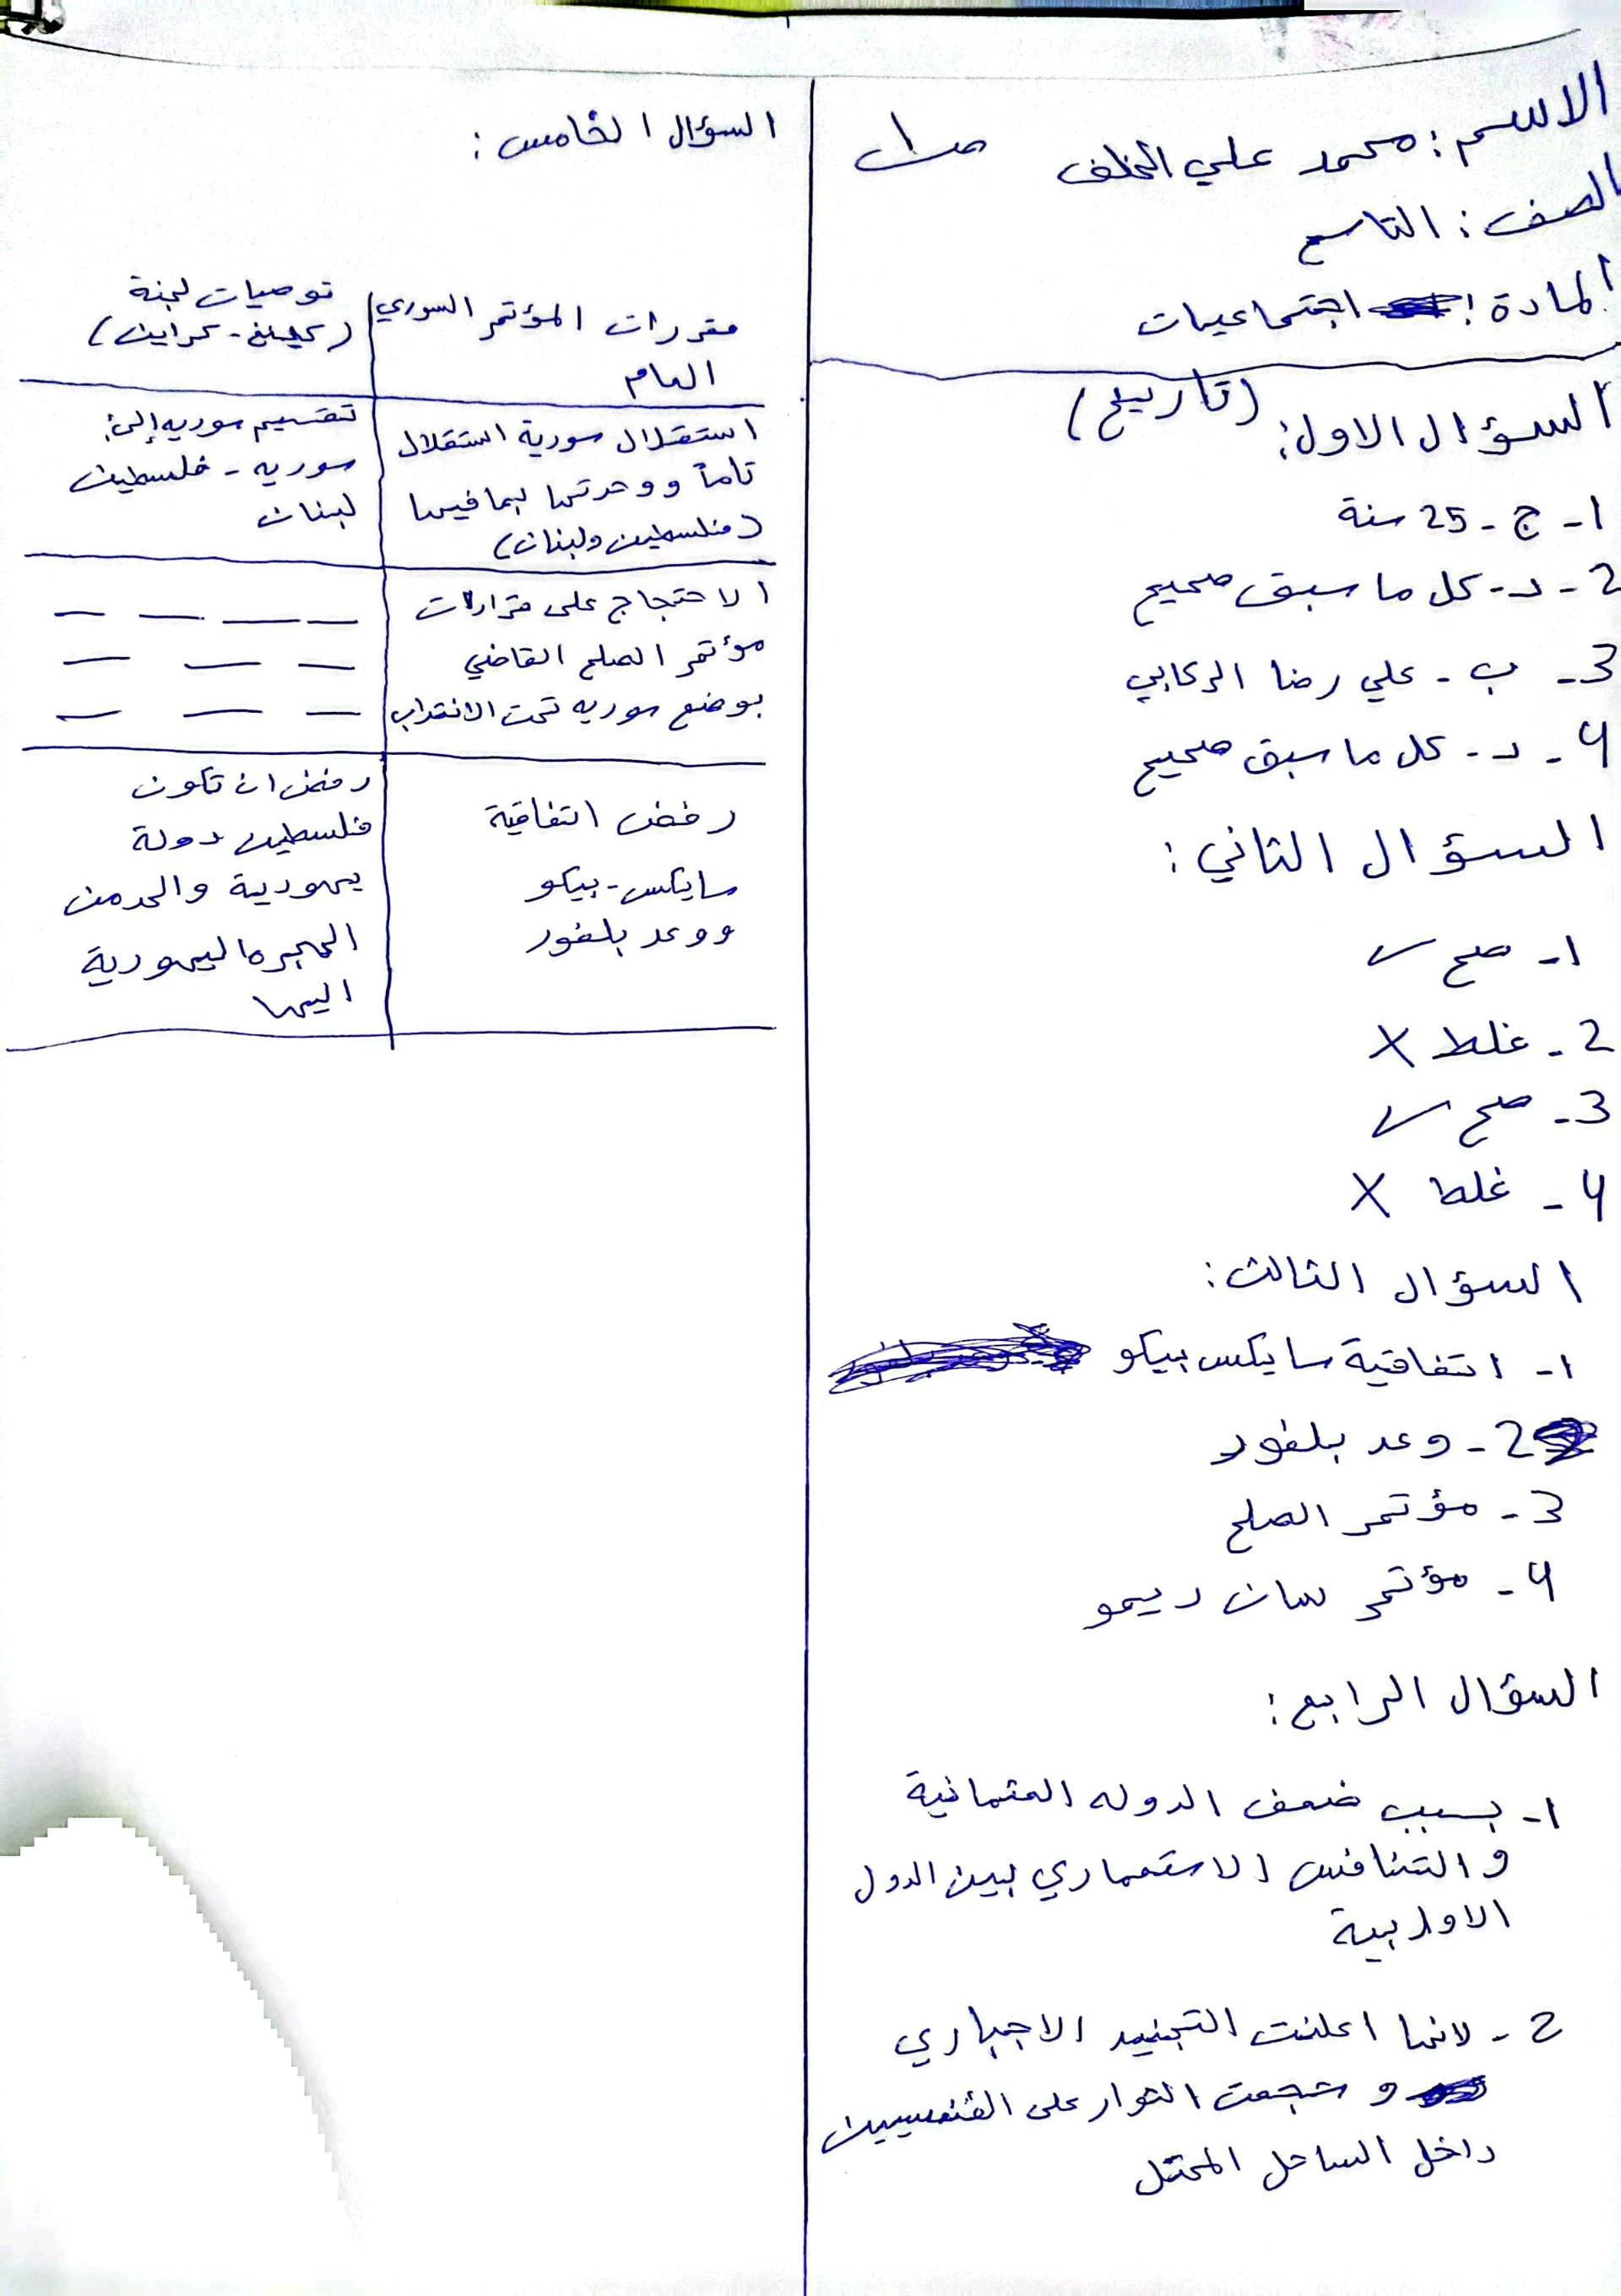 الاسم : محمد علي الخلف
ص١
الصف : التاسع
المادة : اجتماعيات
السؤال الاول : (تاريخ)
1- ج - 25 سنة
2 - د - كل ما سبق صحيح
3 - ب - علي رضا الركابي
4 - د - كل ما سبق صحيح
السؤال الثاني :
1- صح ✓
2 - غلط X
3 - صح ✓
4 - غلط X
السؤال الثالث :
1- اتفاقية سايكس بيكو
2 - وعد بلفور
3 - مؤتمر الصلح
4 - مؤتمر سان ريمو
السؤال الرابع :
1- بسبب ضعف الدوله العثمانية
و التنافس الاستعماري بين الدول
الاوربية
2 - لانها اعلنت التجنيد الاجباري
و شجعت الثوار على الفنسيين
داخل الساحل المحتل
السؤال الخامس :
مقررات المؤتمر السوري
العام
توصيات لجنة
(كينغ - كراين)
استقلال سورية استقلال
تاماً ووحدتها بما فيها
(فلسطين ولبنان)
تقسيم سوريه إلى:
سوريه - فلسطين
لبنان
الاحتجاج على قرارات
مؤتمر الصلح القاضي
بوضع سوريه تحت الانتداب
— — — —
— — —
— — —
رفض اتفاقية
سايكس - بيكو
ووعد بلفور
رفض ان تكون
فلسطين دولة
يهودية والحد من
الهجره اليهودية
اليها